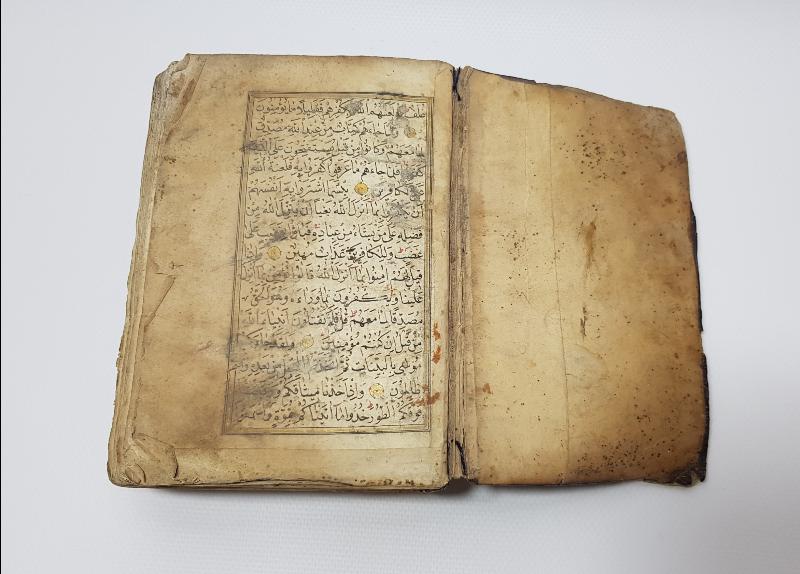 غُلْفٌ لَعَنَهُمُ اللهُ بِكُفْرِهِمْ فَقَلِيلًا مَا يُؤْمِنُونَ
وَلَمَّا جَاءَهُمْ كِتَابٌ مِنْ عِنْدِ اللهِ مُصَدِّقٌ
لِمَا مَعَهُمْ وَكَانُوا مِنْ قَبْلُ يَسْتَفْتِحُونَ عَلَى
فَلَمَّا جَاءَهُمْ مَا عَرَفُوا كَفَرُوا بِهِ فَلَعْنَةُ اللهِ
الْكَافِرِينَ بِئْسَمَا اشْتَرَوْا بِهِ أَنْفُسَهُمْ
أَنْ بِمَا أَنْزَلَ اللهُ بَغْيًا أَنْ يُنَزِّلَ اللهُ مِنْ
فَضْلِهِ عَلَى مَنْ يَشَاءُ مِنْ عِبَادِهِ عَلَى
غَضَبٍ وَلِلْكَافِرِينَ عَذَابٌ مُهِينٌ وَإِذَا
قِيلَ لَهُمْ آمِنُوا بِمَا أَنْزَلَ اللهُ قَالُوا نُؤْمِنُ بِمَا أُنْزِلَ
عَلَيْنَا وَيَكْفُرُونَ بِمَا وَرَاءَهُ وَهُوَ الْحَقُّ
مُصَدِّقًا لِمَا مَعَهُمْ قُلْ فَلِمَ تَقْتُلُونَ أَنْبِيَاءَ اللهِ
مِنْ قَبْلُ إِنْ كُنْتُمْ مُؤْمِنِينَ وَلَقَدْ جَاءَكُمْ
مُوسَى بِالْبَيِّنَاتِ ثُمَّ مِنْ بَعْدِهِ
ظَالِمُونَ وَإِذْ أَخَذْنَا مِيثَاقَكُمْ
فَوْقَكُمُ الطُّورَ خُذُوا مَا آتَيْنَاكُمْ بِقُوَّةٍ وَاسْمَعُوا